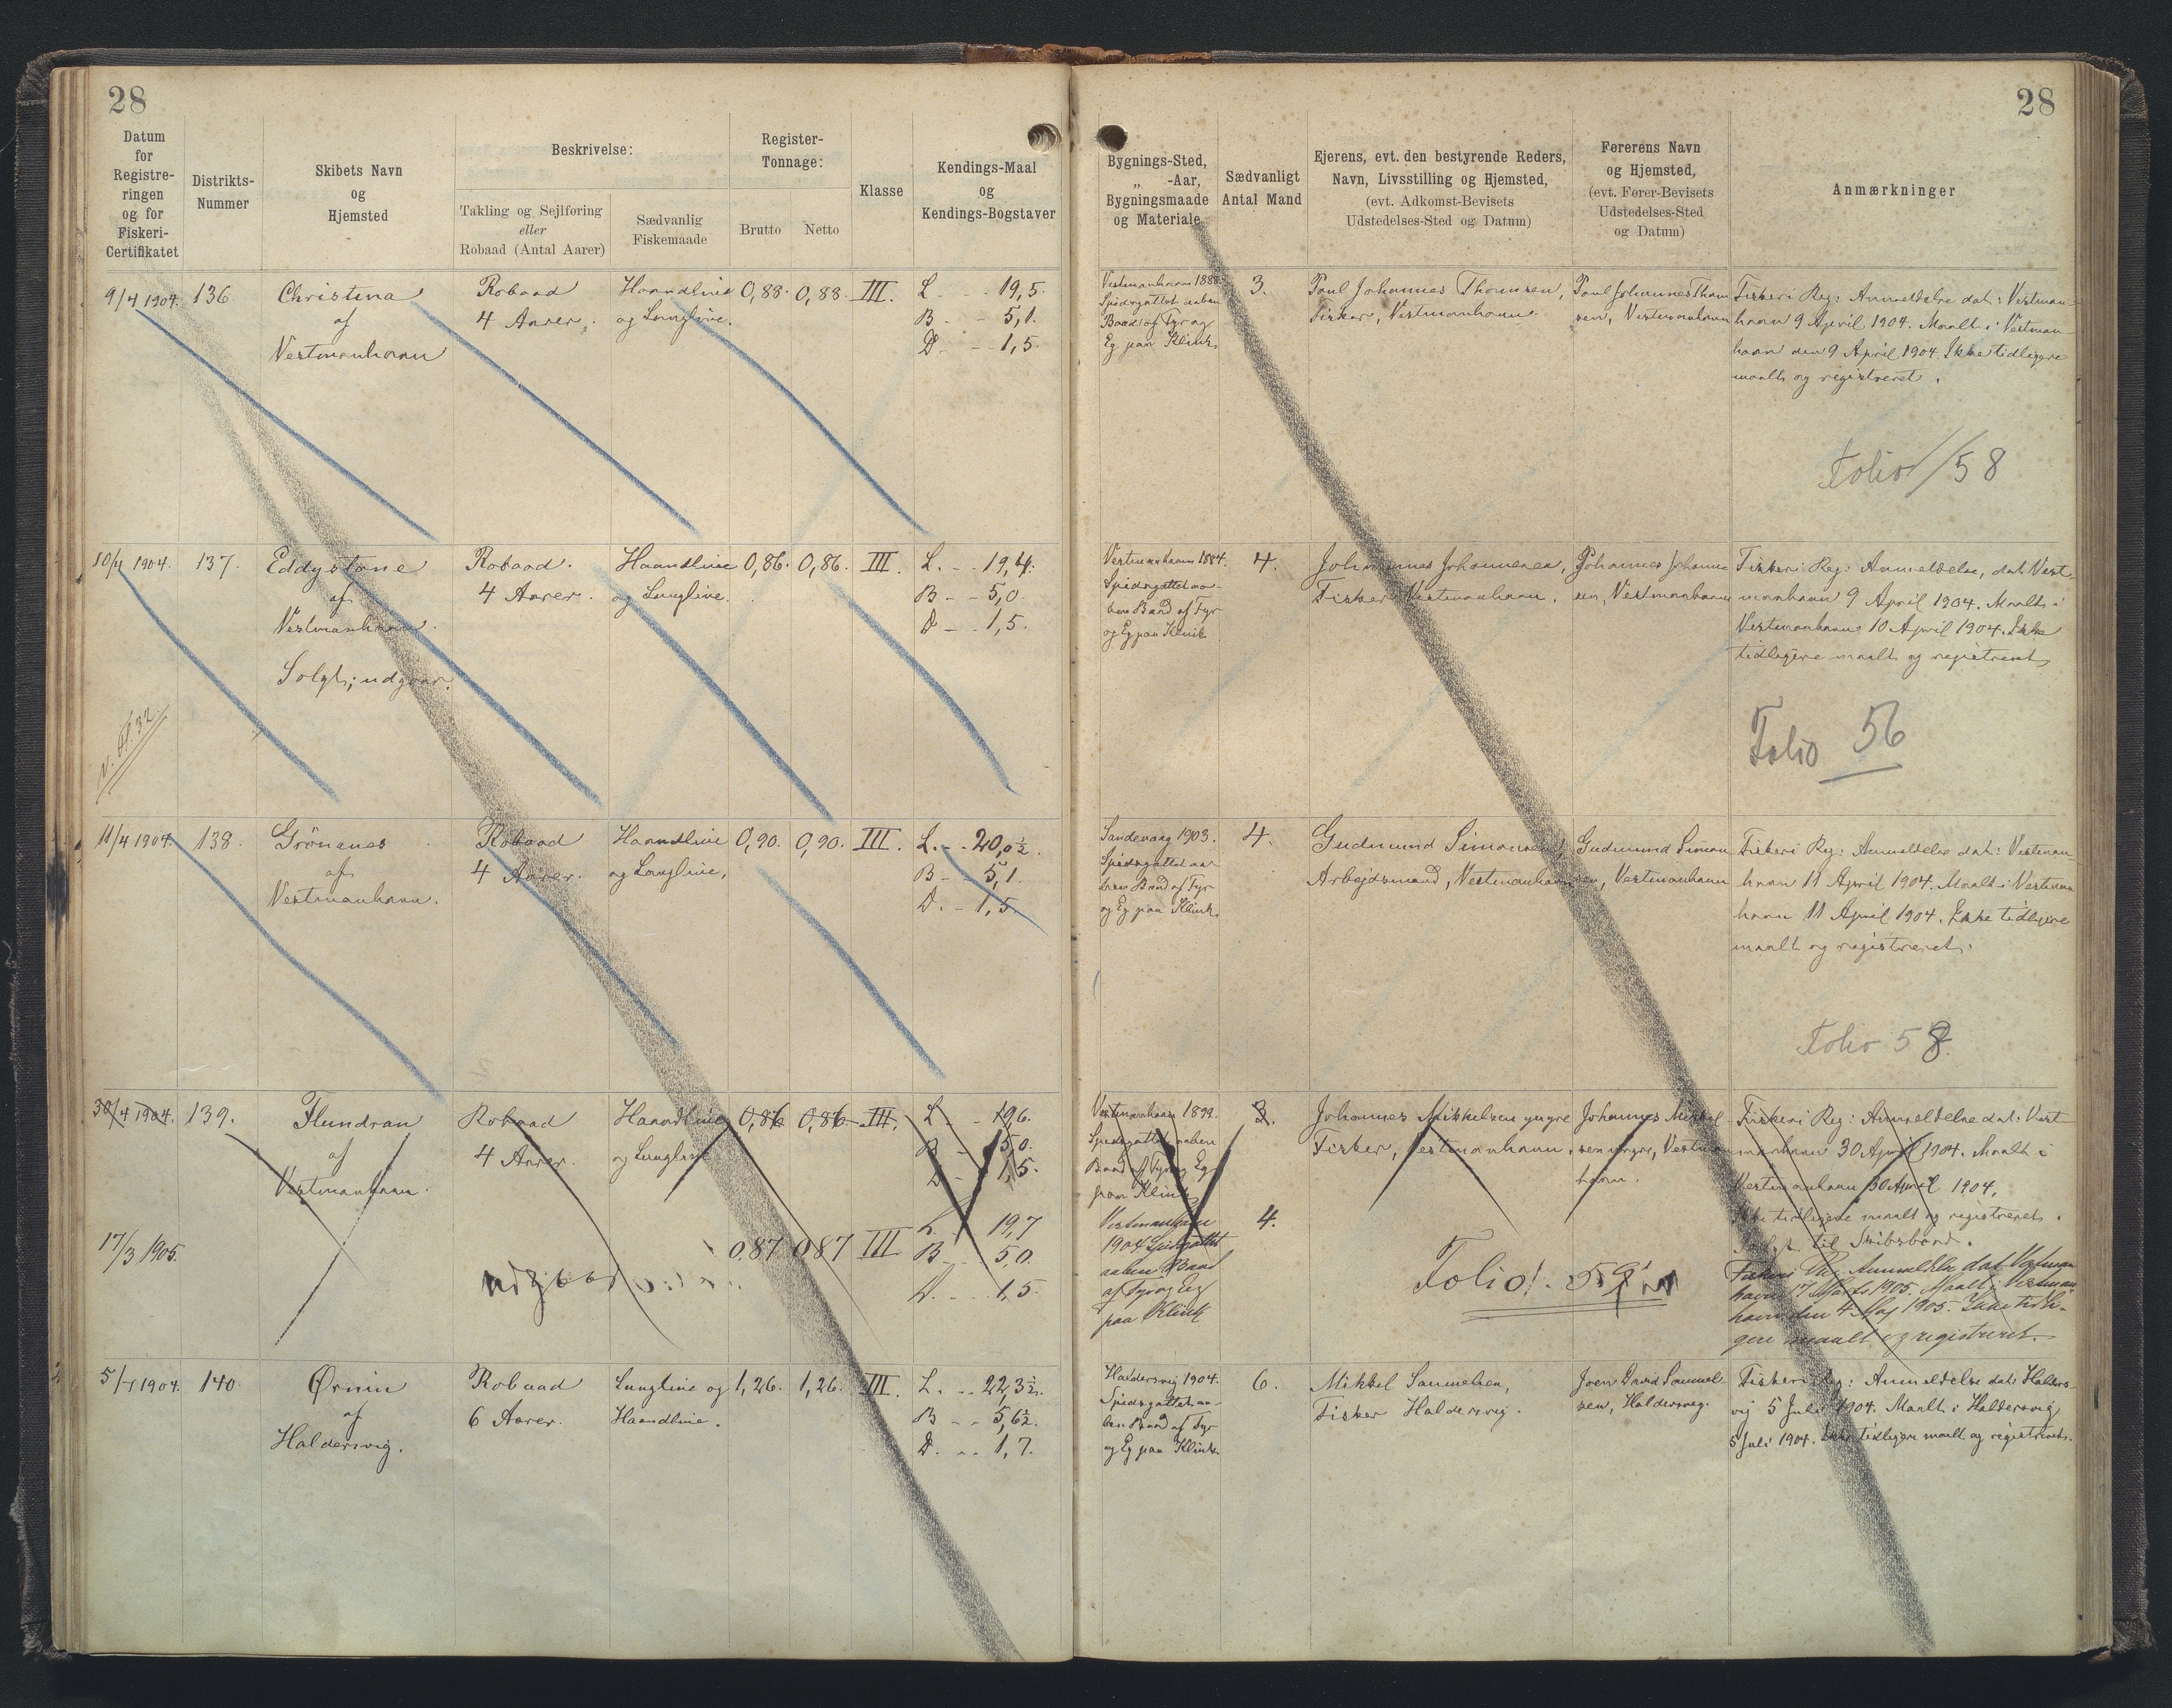 28
28
Datum
for
Registre-
ringen
og for
Fiskeri-
Certifikatet
Distrikts-
Nummer
Skibets Navn
og
Hjemsted
Beskrivelse:
Takling og Sejlføring
eller
Robaad (Antal Aarer)
Sædvanlig
Fiskemaade
Register-
Tonnage:
Brutto
Netto
Klasse
Kendings-Maal
og
Kendings-Bogstaver
Bygnings-Sted,
„ -Aar,
Bygningsmaade
og Materiale
Sædvanligt
Antal Mand
Ejerens, evt. den bestyrende Reders,
Navn, Livsstilling og Hjemsted,
(evt. Adkomst-Bevisets
Udstedelses-Sted og Datum)
Førerens Navn
og Hjemsted,
(evt. Fører-Bevisets
Udstedelses-Sted
og Datum)
Anmærkninger
9/4 1904.
136.
Christina
af
Vestmanhavn
Robaad
4 Aarer.
Haandline
og Langline.
0,88.
0,88.
III.
L - - 19,5.
B - - 5,1.
D. - - 1,5.
Vestmanhavn
Spidsgattet aaben
Baad af Fyr og
Eg paa Klink
3.
Poul Johannes Thomsen,
Fisker, Vestmanhavn.
Poul Johannes Thom
sen, Vestmanhavn
Fiskeri Reg: Anmeldelse dat: Vestman-
havn 9 April 1904. Maalt i Vestman-
havn den 9 April 1904. Ikke tidligere
maalt og registreret.
Folio 58
10/4 1904.
137.
Eddystone
af
Vestmanhavn.
Solgt; udgaar.
Robaad.
4 Aarer.
Haandline
og Langline.
0,86.
0,86.
III.
L. - - 19,4.
B - - 5,0.
D - - 1,5.
Vestmanhavn 1884.
Spidsgattet aa-
ben Baad af Fyr
og Eg paa Klink
4.
Johannes Johannesen,
Fisker Vestmanhavn.
Johannes Johanne
sen, Vestmanhavn
Fiskeri Reg: Anmeldelse, dat. Vest-
manhavn 9 April 1904. Maalt i
Vestmanhavn 10 April 1904. Ikke
tidligere maalt og registreret
Folio 56
11/4 1904.
138.
Grönanes
af
Vestmanhavn.
Robaad
4 Aarer.
Haandline
og Langline,
0,90.
0,90.
III.
L. - - 20,0½.
B - - 5,1.
D. - 1,5.
Sandevaag 1903.
Spidsgattet aa-
ben Baad af Fyr
og Eg paa Klink
4.
Gudmund Simonsen,
Arbejdsmand, Vestmanhavn
Gudmund Simon
sen, Vestmanhavn
Fiskeri Reg: Anmeldelse dat: Vestman-
havn 11 April 1904. Maalt i Vestman
havn 11 April 1904. Ikke tidligere
maalt og registreret.
Folio 58.
30/4 1904.
139.
Flundran
af
Vestmanhavn.
Robaad
4 Aarer.
Haandline
og Langline
0,86
0,86
III.
L - 19,6.
B - 5,0.
D - 1,5.
Vestmanhavn 1899.
Spidsgattet aaben
Baad af Fyr og Eg
paa Klink
3.
Johannes Mikkelsen yngre
Fisker, Vestmanhavn.
Johannes Mikkel
sen yngre, Vestman
havn.
Fiskeri Reg: Anmeldelse dat: Vest
manhavn 30 April 1904. Maalt i
Vestmanhavn 30 April 1904.
Ikke tidligere maalt og registreret.
Solgt til Skibsbaad.
17/3 1905.
0,87
0,87
III
L - 19,7
B - 5,0.
D. - - 1,5.
Vestmanhavn
1904 Spidsgattet
aaben Baad
af Fyr og Eg
paa Klink
4.
Folio
Fiskeri Reg Anmeldelse dat Vestman
havn 17 Marts 1905. Maalt i Vestman
havn den 4 Maj 1905. Ikke tidli-
gere maalt og registreret.
1904.
140.
Ørnin
af
Haldersvig.
Robaad
6 Aarer.
Langline og
Haandline.
1,26.
1,26.
III.
L. - - 22,3½.
B - - 5,6½.
D. - - 1,7.
Haldersvig 1904.
Spidsgattet aa-
ben Baad af Fyr
og Eg paa Klink
6.
Mikkel Samuelsen,
Fisker Haldersvig.
Joen David Samuel-
sen, Haldersvig.
Fiskeri Reg: Anmeldelse dat: Halders-
vig 5 Juli 1904. Maalt i Haldersvig
5 Juli 1904. Ikke tidligere maalt og registreret.